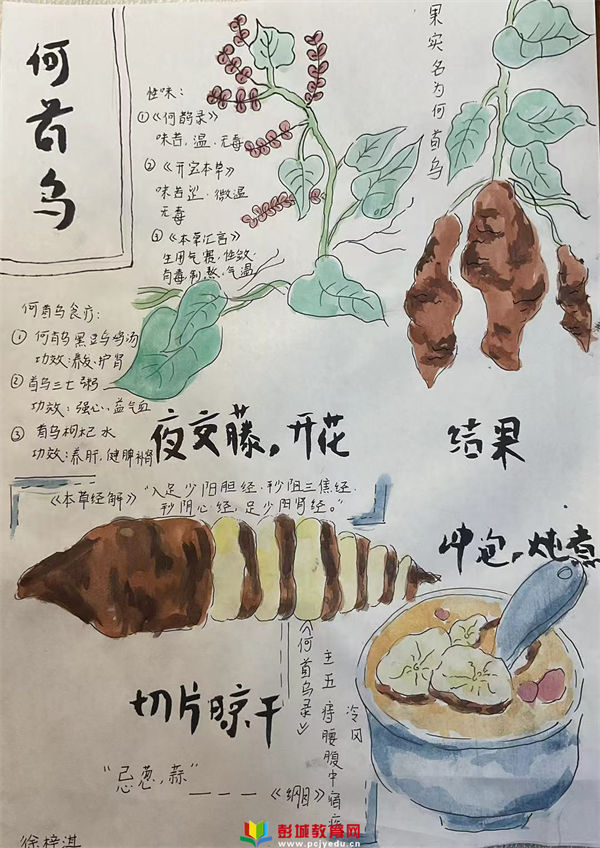 何首乌
果实名为何首乌
性味：
①《何首录》
味苦，温，无毒
②《开宝本草》
味苦涩，微温
无毒
③《本草汇言》
生用气寒，性敛
有毒制熟，气温
何首乌食疗：
① 何首乌黑豆乌鸡汤
功效：养发、护肾
② 首乌三七粥
功效：强心、益气血
③ 首乌枸杞水
功效：养肝，健脾补肾
夜交藤，开花
结果
《本草经解》“入足少阳胆经、手少阳三焦经、
手少阴心经，足少阴肾经。”
冲泡，炖煮
切片晾干
《何首乌录》
主五痔腰腹中
冷风
“忌葱，蒜”
———《纲目》
徐梓淇
彭城教育网
www.pcjyedu.cn